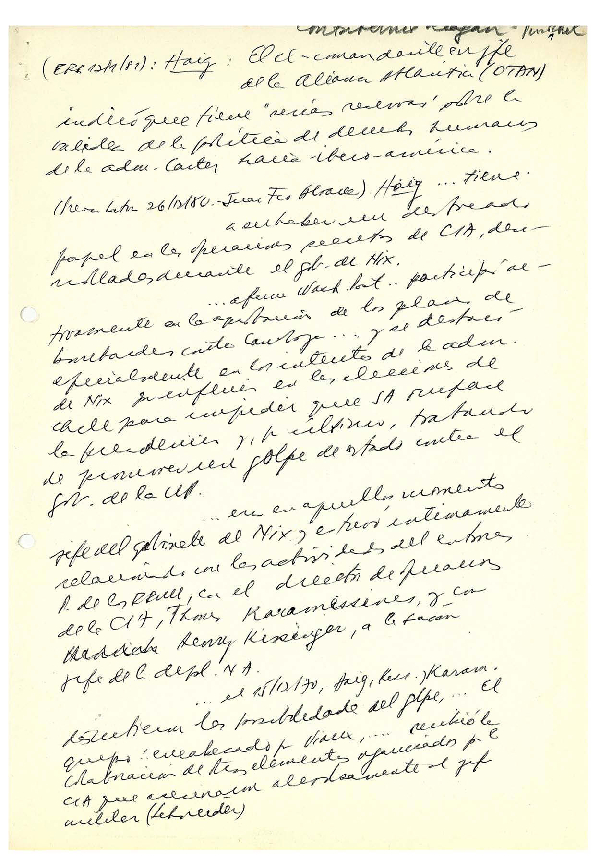 Reagan - Pinochet
(ERC 12/1/81): Haig: El ex-comandante en jefe
de la Alianza Atlántica (OTAN)
indicó que tiene "serias reservas" sobre la
validez de la política de derechos humanos
de la adm. Carter hacia ibero-américa.
(Prensa Latin 26/12/80 - Juan Fco Alvarez) Haig ... tiene
a su haber un destacado
papel en las operaciones secretas de CIA, desa-
rrolladas durante el gob. de Nix.
... afirma Wash Post .. participó ac-
tivamente en la aprobación de los planes de
bombardeos contra Camboya ... y se destacó
especialmente en los intentos de la adm.
de Nix por influir en las elecciones de
Chile para impedir que SA ocupase
la presidencia y, p. último, tratando
de promover un golpe de estado contra el
gob. de la UP.
... era en aquellos momentos
jefe del gabinete de Nix y estuvo íntimamente
relacionado con las actividades del entonces
P. de los EEUU, con el director de operaciones
de la CIA, Thomas Karamessines, y con
Henry Kissinger, a la sazón
jefe de l depl. N A.
... el 15/10/70, Haig, Kiss. y Karam.
discutieron las posibilidades del golpe, ... El
grupo encabezado p. Viaux, ... recibió la
colaboración de tres elementos organizados p. la
CIA que asesinaron alevosamente al jefe
militar (Schneider)